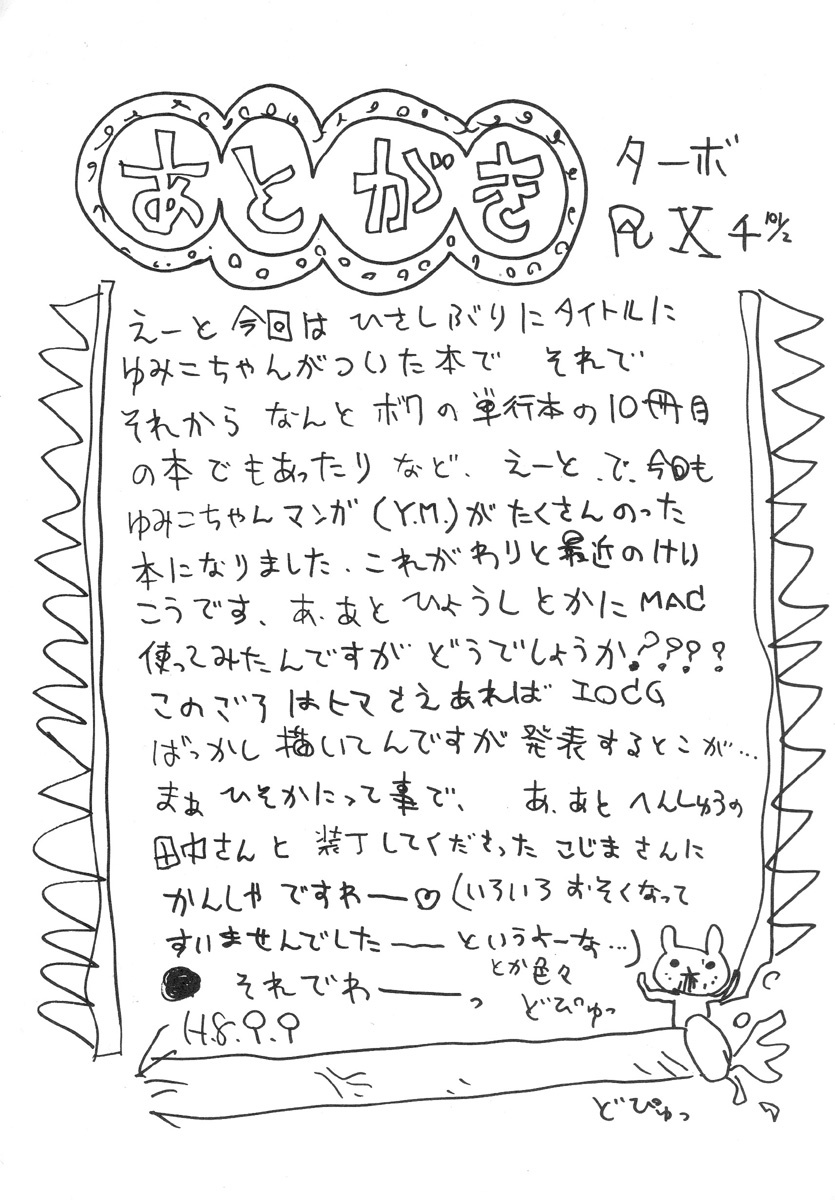 あとがき
ターボ
RX4 10½
えーと 今回は ひさしぶりにタイトルに
ゆみこちゃんがついた本で それで
それから なんと ボクの単行本の10冊目
の本でもあったり など、えーと、で、今回も
ゆみこちゃんマンガ(Y.M.)がたくさんのった
本になりました、これがわりと最近のけい
こうです、あ、あと ひょうしとかにMAC
使ってみたんですが どうでしょうか????
このごろはヒマさえあれば エロCG
ばっかし描いてんですが発表するとこが…
まぁ ひそかにって事で、 あ、あと へんしゅうの
田中さんと 装丁してくださった こじまさんに
かんしゃ ですわー♡(いろいろ おそくなって
すいませんでしたー というよーな…)
それでわーっ
とか色々
どぴゅっ
H.8.9.9
どぴゅっ